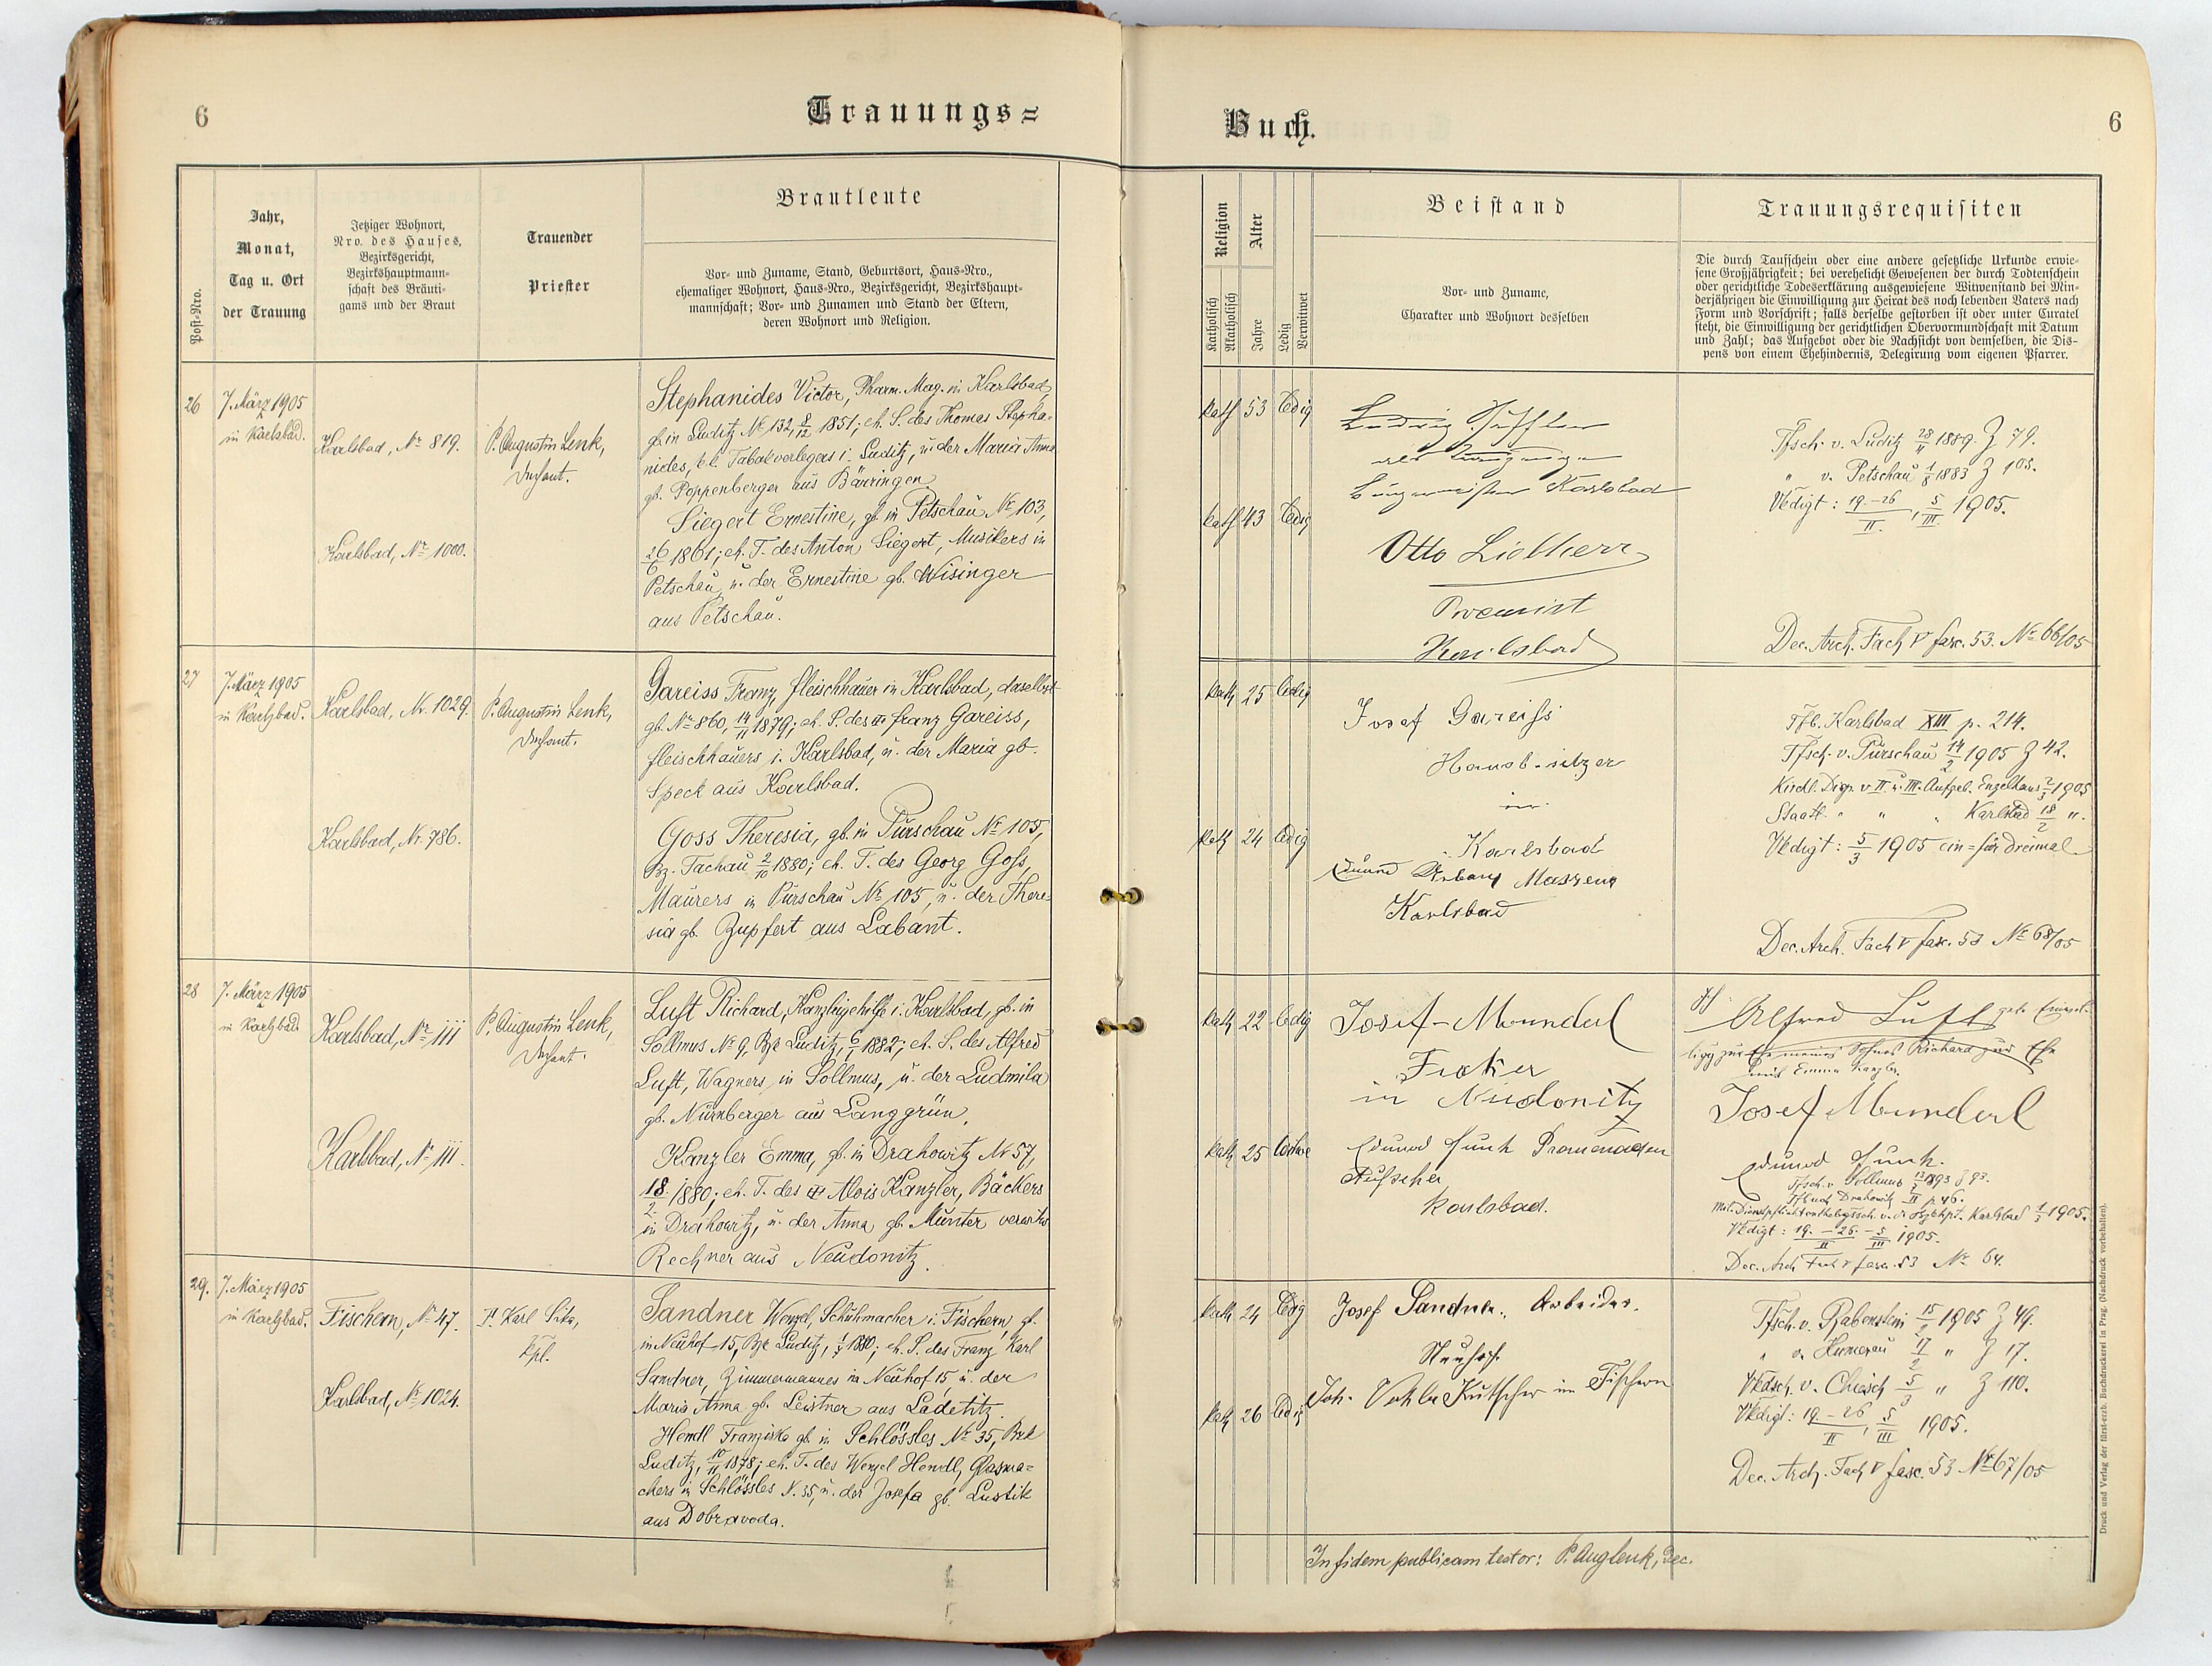 6
Trauungs=
Post=Nro.
Jahr,
Monat,
Tag u. Ort
der Trauung
Jetziger Wohnort,
Nro. des Hauses,
Bezirksgericht,
Bezirkshauptmann=
schaft des Bräuti=
gams und der Braut
Trauender
Priester
Brautleute
Vor= und Zuname, Stand, Geburtsort, Haus=Nro.,
ehemaliger Wohnort, Haus=Nro., Bezirksgericht, Bezirkshaupt=
mannschaft; Vor= und Zunamen und Stand der Eltern,
deren Wohnort und Religion.
26
7. März 1905
in Karlsbad.
Karlsbad, Nr 819.
Karlsbad, Nr 1000.
P. Augustin Lenk,
Dechant.
Stephanides Victor, Pharm. Mag. in Karlsbad,
gb. in Luditz Nr 132, 8/12 1851; eh. S. des Thomas Stepha-
nides, k.k. Tabakverlegers i. Luditz, u. der Maria Anna
gb. Poppenberger aus Bärringen.
Siegert Ernestine, gb. in Petschau Nr 103,
26/6 1861; eh. T. des Anton Siegert, Musikers in
Petschau, u. der Ernestine gb. Wisinger
aus Petschau.
27
7. März 1905
in Karlsbad.
Karlsbad, Nr. 1029.
Karlsbad, Nr. 786.
P. Augustin Lenk,
Dechant.
Gareiss Franz, Fleischhauer in Karlsbad, daselbst
gb. Nr 860, 14/11 1879; eh. S. des Franz Gareiss,
Fleischhauers i. Karlsbad, u. der Maria gb.
Speck aus Karlsbad.
Goss Theresia, gb. in Purschau Nr 105,
Bz. Tachau 2/10 1880; eh. T. des Georg Goss,
Maurers in Purschau Nr 105, u. der There-
sia gb. Zupfert aus Labant.
28
7. März 1905
in Karlsbad.
Karlsbad, Nr 111
Karlsbad, Nr 111.
P. Augustin Lenk,
Dechant.
Luft Richard, Kanzleigehilfe i. Karlsbad, gb. in
Sollmus Nr 9, Bzk Luditz, 6/1 1882; eh. S. des Alfred
Luft, Wagners in Sollmus, u. der Ludmila
gb. Nürnberger aus Langgrün.
Kanzler Emma, gb. in Drahowitz Nr 57,
18/2 1880; eh. T. des Alois Kanzler, Bäckers
in Drahowitz, u. der Anna gb. Munter verwitw.
Rechner aus Neudonitz.
29.
7. März 1905
in Karlsbad.
Fischern, Nr 47.
Karlsbad, Nr 1024.
P. Karl Sika,
Kpl.
Sandner Wenzel, Schuhmacher i. Fischern, gb.
in Neuhof 15, Bzk Luditz, 1880; eh. S. des Franz Karl
Sandner, Zimmermannes in Neuhof 15, u. der
Maria Anna gb. Leistner aus Ladetitz.
Hendl Franziska gb. in Schlössles Nr 35, Bzk
Luditz, 10/11 1878; eh. T. des Wenzel Hendl, Glasma=
chers in Schlössles N. 35, u. der Josefa gb. Lustik
aus Dobrawoda.
Buch.
6
Religion
Katholisch
Akatholisch
Alter
Jahre
Ledig
Verwitwet
Beistand
Vor= und Zuname,
Charakter und Wohnort desselben
Trauungsrequisiten
Die durch Taufschein oder eine andere gesetzliche Urkunde erwie=
sene Großjährigkeit; bei verehelicht Gewesenen der durch Todtenschein
oder gerichtliche Todeserklärung ausgewiesene Witwenstand bei Min=
derjährigen die Einwilligung zur Heirat des noch lebenden Vaters nach
Form und Vorschrift; falls derselbe gestorben ist oder unter Curatel
steht, die Einwilligung der gerichtlichen Obervormundschaft mit Datum
und Zahl; das Aufgebot oder die Nachsicht von demselben, die Dis=
pens von einem Ehehindernis, Delegirung vom eigenen Pfarrer.
kath 53 ledig
kath 43 ledig
Ludwig
Bürgermeister Karlsbad
Otto Lieblherr
Karlsbad
Tfsch. v. Luditz 28/11 1889. Z 79.
" v. Petschau 1883 Z 105.
Vkdigt: 19.-26/II., 5/III 1905.
Dec. Arch. Fach V fasc. 53. Nr 66/05
kath 25 ledig
kath 24 ledig
Josef Gareiss
Hausbesitzer
in
Karlsbad
Karlsbad
Tfb. Karlsbad XIII p. 214.
Tfsch. v. Purschau 14/2 1905 Z 42.
Kirchl. Disp. v. II u. III. Aufgeb. Engelhaus 2/3 1905
Staatl. " " " Karlsbad 18/2 ".
Vkdigt: 5/3 1905 ein= für dreimal.
Dec. Arch. Fach V fasc. 53 Nr 68/05
kath 22 ledig
kath 25 ledig
Josef Munderl
in Neudonitz
Eduard Funk Promenaden
Aufseher
Karlsbad.
Alfred Luft
meines Sohnes Richard zur Ehe
mit Emma Kanzler.
Josef Munderl
Eduard Funk.
Tfsch. v. Sollmus 1893 Z 93.
Tfbuch Drahowitz II p 46.
Karlsbad 1/3 1905.
Vkdigt: 19.-26./II - 5/III 1905.
Dec. Arch Fach V fasc. 53 Nr 64.
kath 24 ledig
kath 26 ledig
Josef Sandner, Arbeiter.
Neuhof.
Joh. Kutscher in Fischern
Tfsch. v. Rabenstein 15/2 1905 Z 49.
" v. 17/2 " Z 17.
Vkdsch. v. Chiesch 5/3 " Z 110.
Vkdigt: 19.-26/II, 5/III 1905.
Dec. Arch. Fach V fasc. 53 Nr 67/05
In fidem publicam testor: P. Aug Lenk, Dec.
Druck und Verlag der fürst-erzb. Buchdruckerei in Prag. (Nachdruck vorbehalten).